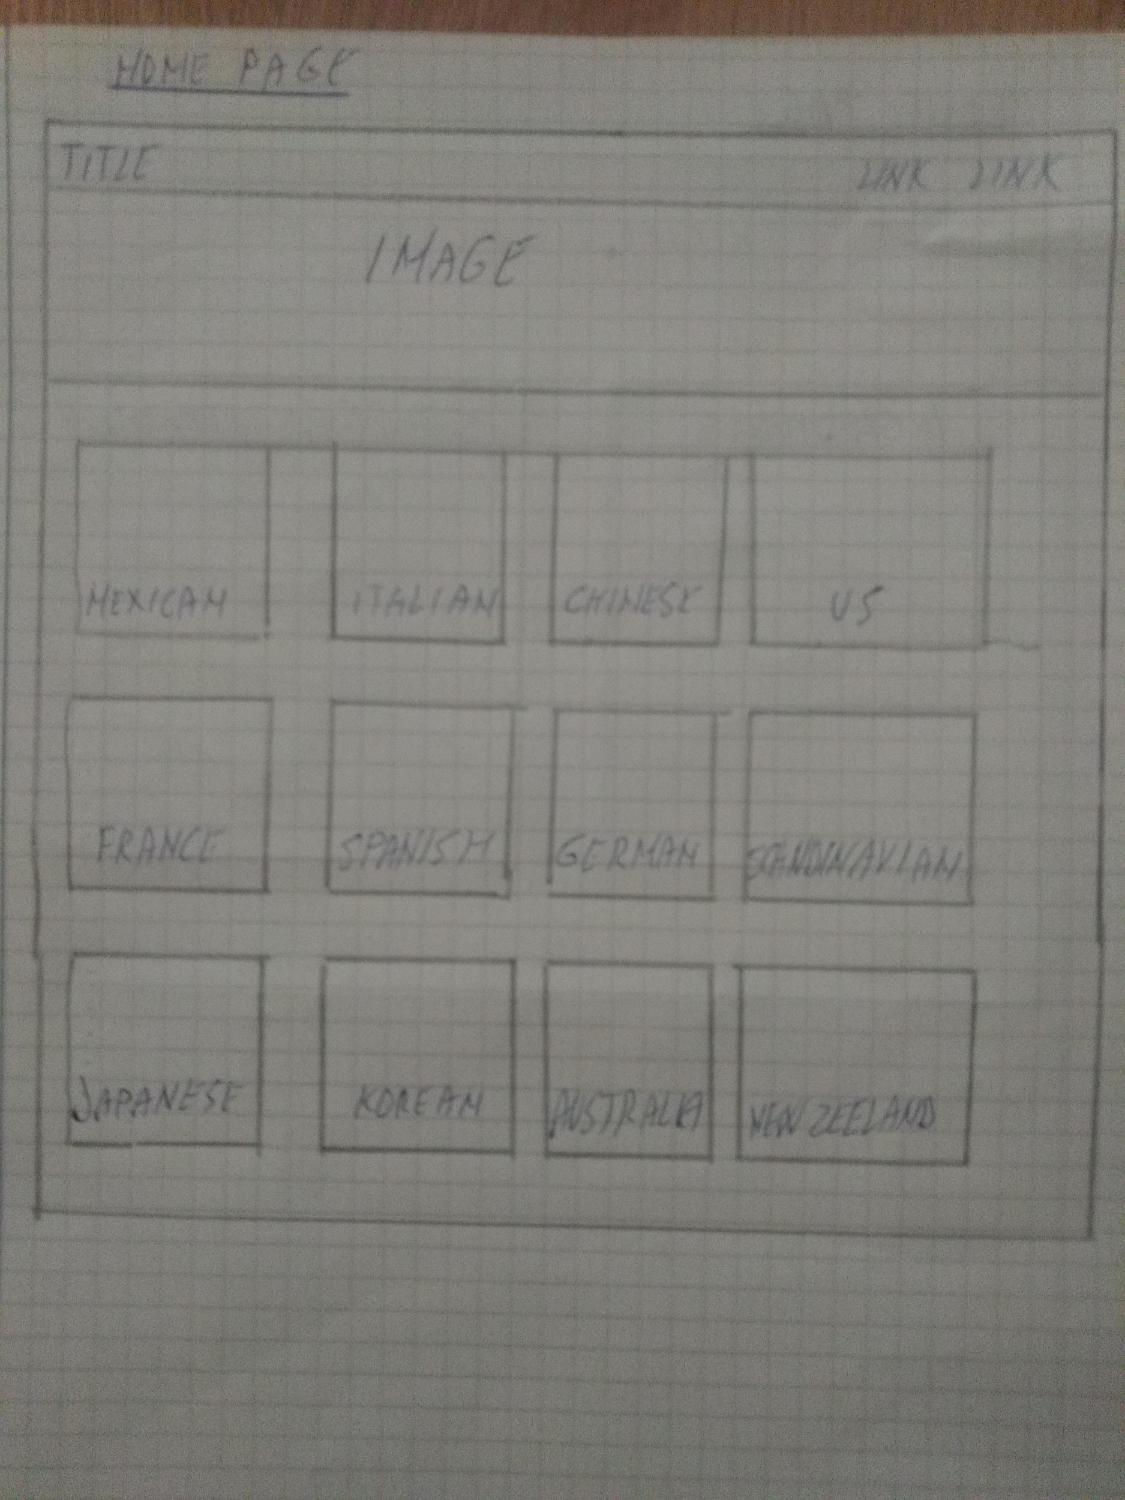 HOME PAGE
TITLE LINK LINK
IMAGE
MEXICAN ITALIAN CHINESE US
FRANCE SPANISH GERMAN SCANDINAVIAN
JAPANESE KOREAN AUSTRALIA NEW ZEELAND